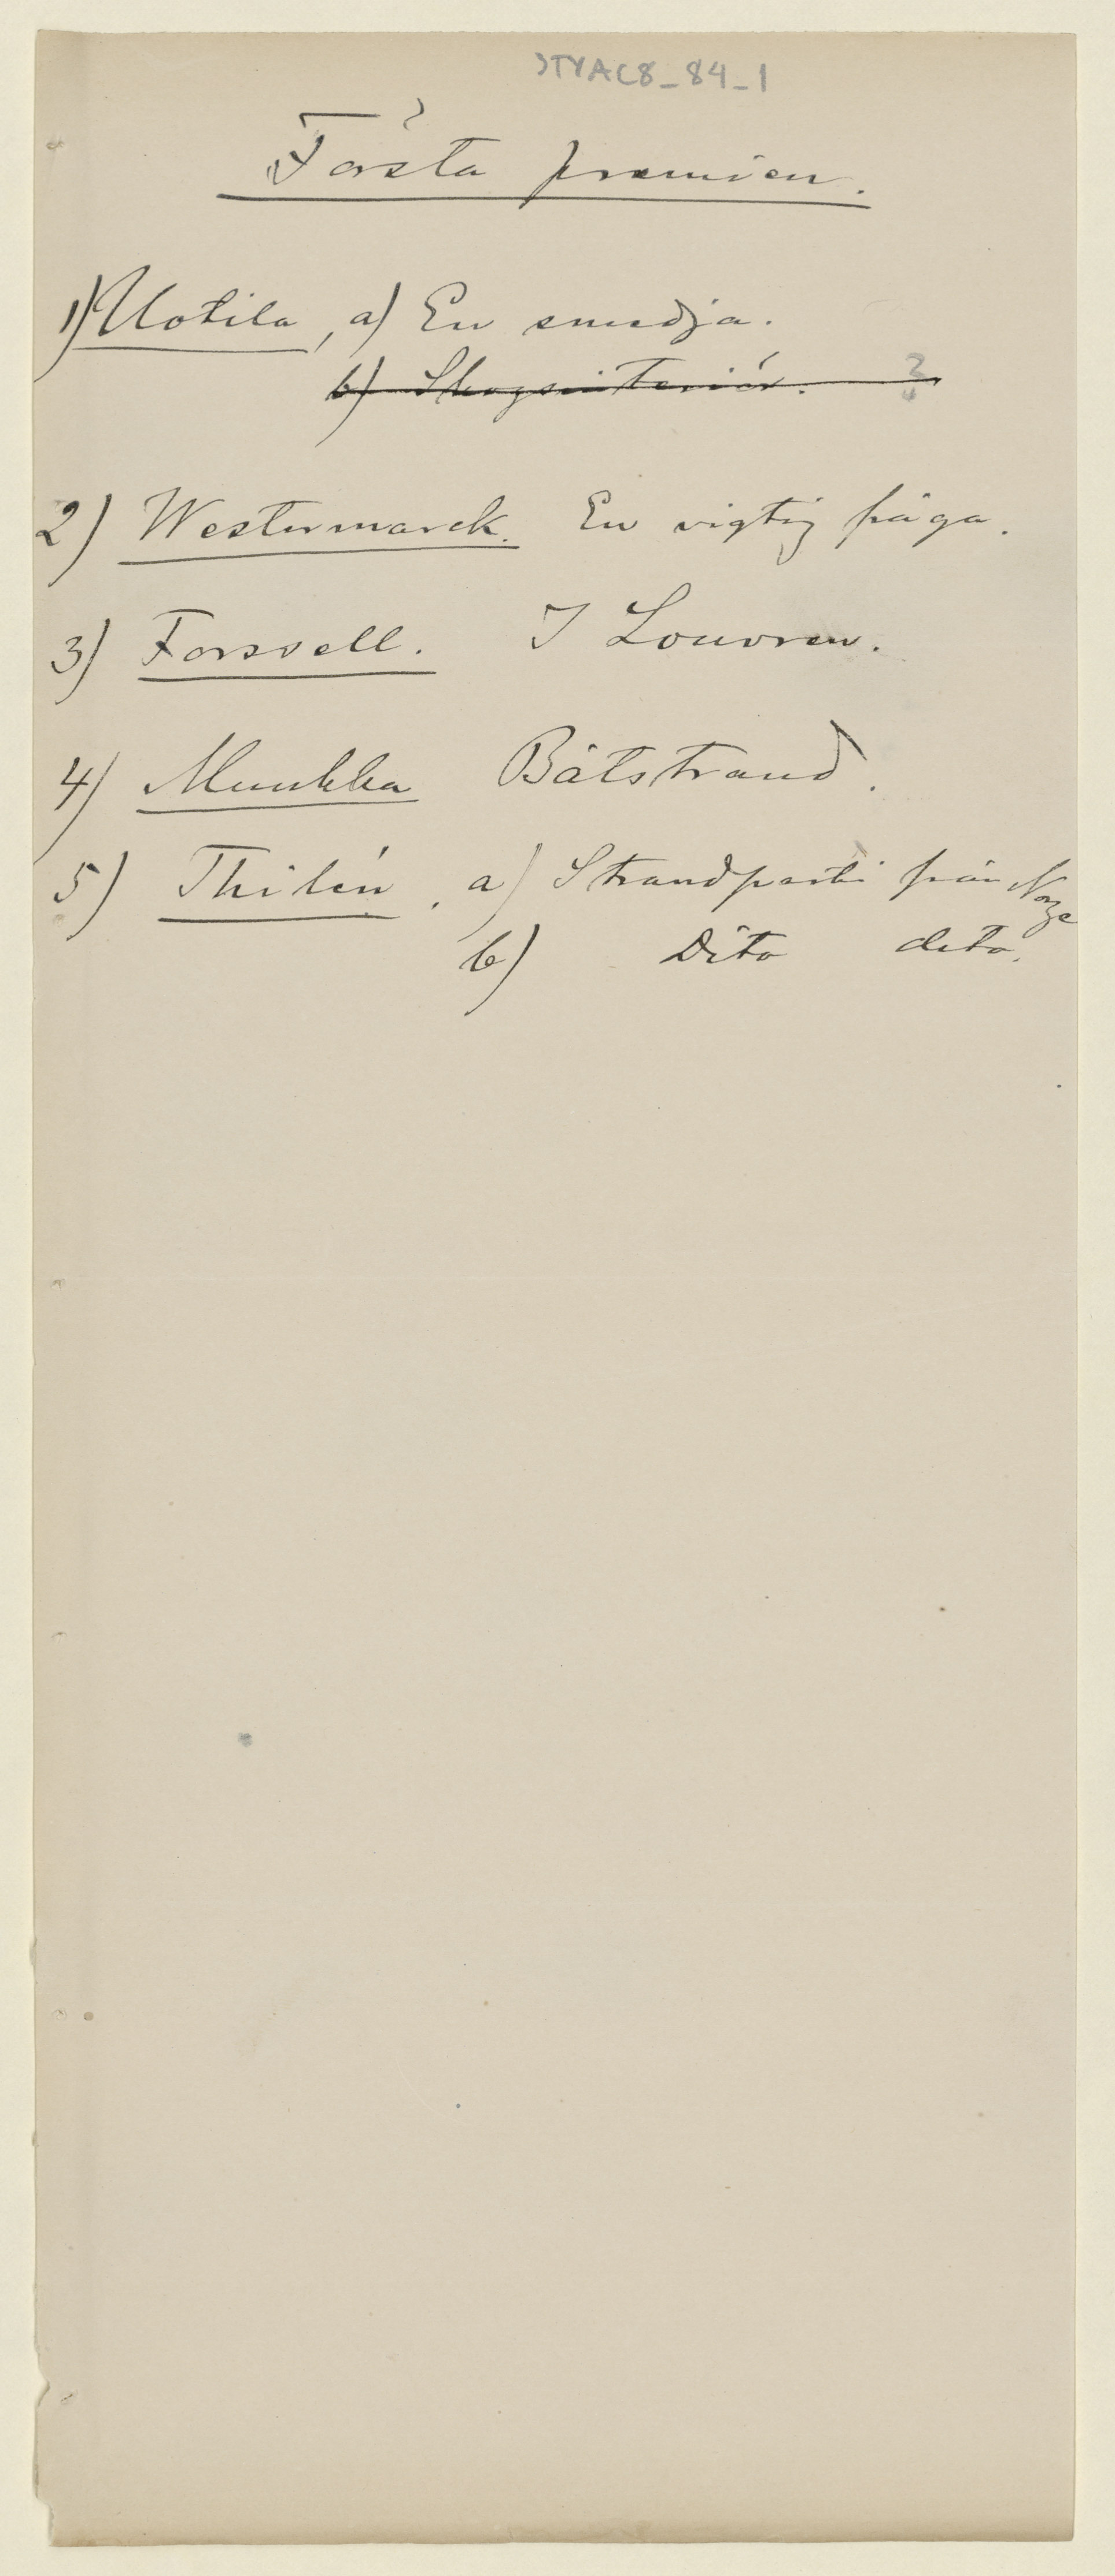 STYAC8_84_1
Första premien.
1) Uotila, a) En smedja.
b) Skogsinteriör. 3
2) Westermarck. En vigtig fråga.
3) Forssell. I Louvren.
4) Munkka Båtstrand.
5) Thilén, a) Strandparti från Norge
b) Dito dito.